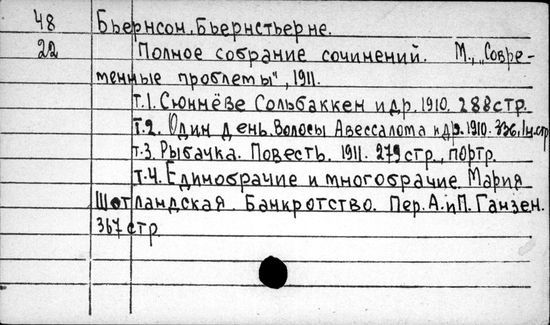 48 Бьернсон, Бьернстьерне.
22 Полное собрание сочинений. М., „Совре-
менные проблемы", 1911.
т.1. Сюннёве Сольбаккен и др. 1910. 288 стр.
т.2. Один день. Волосы Авессалома и др. 1910. 336, 1н. стр
т.3. Рыбачка. Повесть. 1911. 279 стр., портр.
т.4. Единобрачие и многобрачие. Мария
Шотландская. Банкротство. Пер. А. и П. Ганзен.
367 стр.